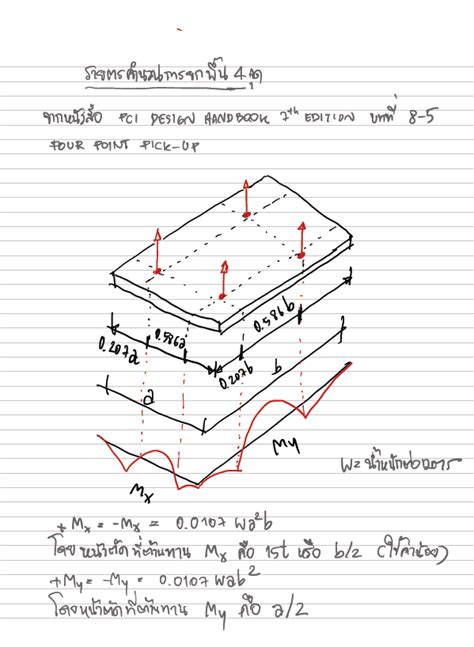 รายการคำนวณการยกพื้น 4 จุด
จากหนังสือ PCI DESIGN HANDBOOK 7th EDITION บทที่ 8-5
FOUR POINT PICK-UP
0.207a
0.586a
0.207b
0.586b
a
b
Mx
My
W = น้ำหนักต่อตาราง
+Mx = -Mx = 0.0107 wa²b
โดย หน้าตัดที่ต้านทาน Mx คือ 15t หรือ b/2 (ใช้ค่าน้อย)
+My = -My = 0.0107 wab²
โดยหน้าตัดที่ต้านทาน My คือ a/2